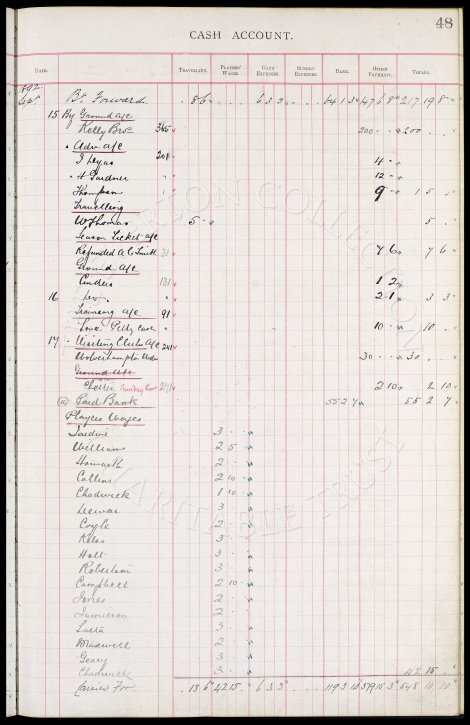 48
CASH ACCOUNT.
DATE. TRAVELLING. PLAYERS' WAGES. GATE EXPENSES. SUNDRY EXPENSES. BANK. OTHER PAYMENTS. TOTALS.
1892
Sep. Bt Forward 8 6 6 3 3 64 1 3 47 6 8 217 19 8
15 By Ground a/c
Kelly Bros 365 200 200
Adv a/c
208 4
H Gardner 12
Thompson 9 1 5
Travelling
W Thomas 5 5
Season Ticket a/c
Refunded A C Smith 31 7 6 7 6
Ground a/c
Cinders 131 1 2
16 Do 2 1 3 3
Training a/c 91
Love Petty cash 10 10
17 Visiting Clubs a/c 241
Wolverhampton Wdrs 30 30
Ground a/c
Chester 2 10 2 10
Paid Bank 55 2 7 55 2 7
Players Wages
Jardine 3
Williams 2 5
Howarth 2
Collins 2 10
Chadwick 1 10
Dewar 3
Coyle 2
Kelso 3
Holt 3
Robertson 3
Campbell 2 10
Jones 2
Jamieson 2
Latta 3
Maxwell 2
Geary 3
Chadwick 3 42 15
Carried For. 13 6 42 15 6 3 3 119 3 10 648 10 10
EVERTON COLLECTION
CHARITABLE TRUST